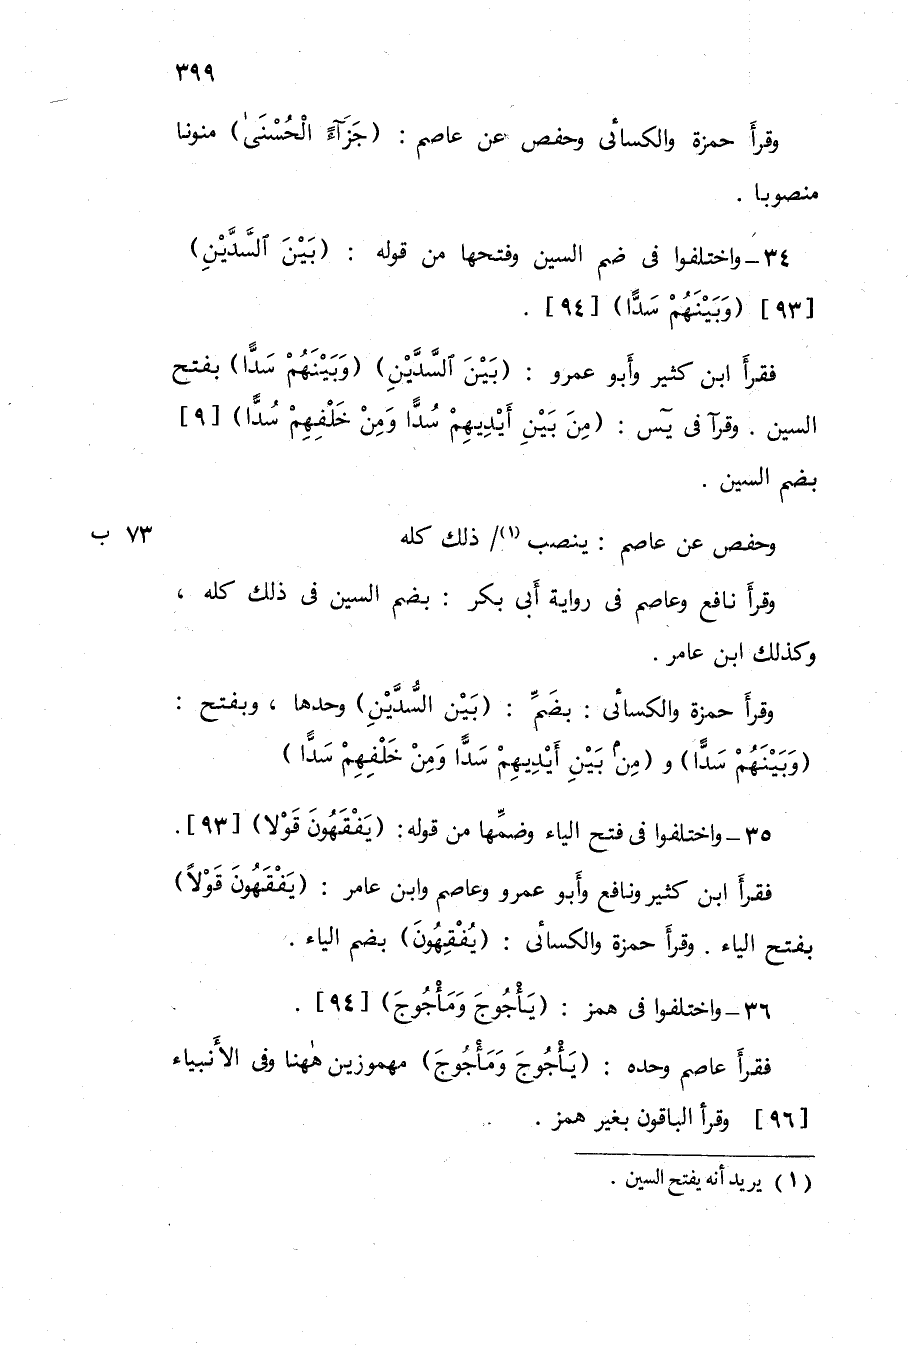 ٣٩٩
وقرأ حمزة والكسائى وحفص عن عاصم : (جَزَآءً الْحُسْنَىٰ) منونا
منصوبا .
٣٤ـ واختلفوا فى ضم السين وفتحها من قوله : (بَيْنَ ٱلسَّدَّيْنِ)
[٩٣] (وَبَيْنَهُمْ سَدًّا) [٩٤] .
فقرأ ابن كثير وأبو عمرو : (بَيْنَ ٱلسَّدَّيْنِ) (وَبَيْنَهُمْ سَدًّا) بفتح
السين . وقرآ فى يٓس : (مِنَ بَيْنِ أَيْدِيهِمْ سُدًّا وَمِنْ خَلْفِهِمْ سُدًّا) [٩]
بضم السين .
وحفص عن عاصم : ينصب (١)/ ذلك كله ٧٣ ب
وقرأ نافع وعاصم فى رواية أبى بكر : بضم السين فى ذلك كله ،
وكذلك ابن عامر .
وقرأ حمزة والكسائى : بضَمِّ : (بَيْن السُّدَّيْنِ) وحدها ، وبفتح :
(وَبَيْنَهُمْ سَدًّا) و (مِنۢ بَيْنِ أَيْدِيهِمْ سَدًّا وَمِنْ خَلْفِهِمْ سَدًّا )
٣٥ـ واختلفوا فى فتح الياء وضمِّها من قوله: (يَفْقَهُونَ قَوْلا) [٩٣].
فقرأ ابن كثير ونافع وأبو عمرو وعاصم وابن عامر : (يَفْقَهُونَ قَوْلاً)
بفتح الياء . وقرأ حمزة والكسائى : (يُفْقِهُونَ) بضم الياء .
٣٦ـ واختلفوا فى همز : (يَأْجُوجَ وَمَأْجُوجَ) [٩٤] .
فقرأ عاصم وحده : (يَأْجُوجَ وَمَأْجُوجَ) مهموزين هٰهنا وفى الأَنبياء
[٩٦] وقرأ الباقون بغير همز .
(١) يريد أنه يفتح السين .